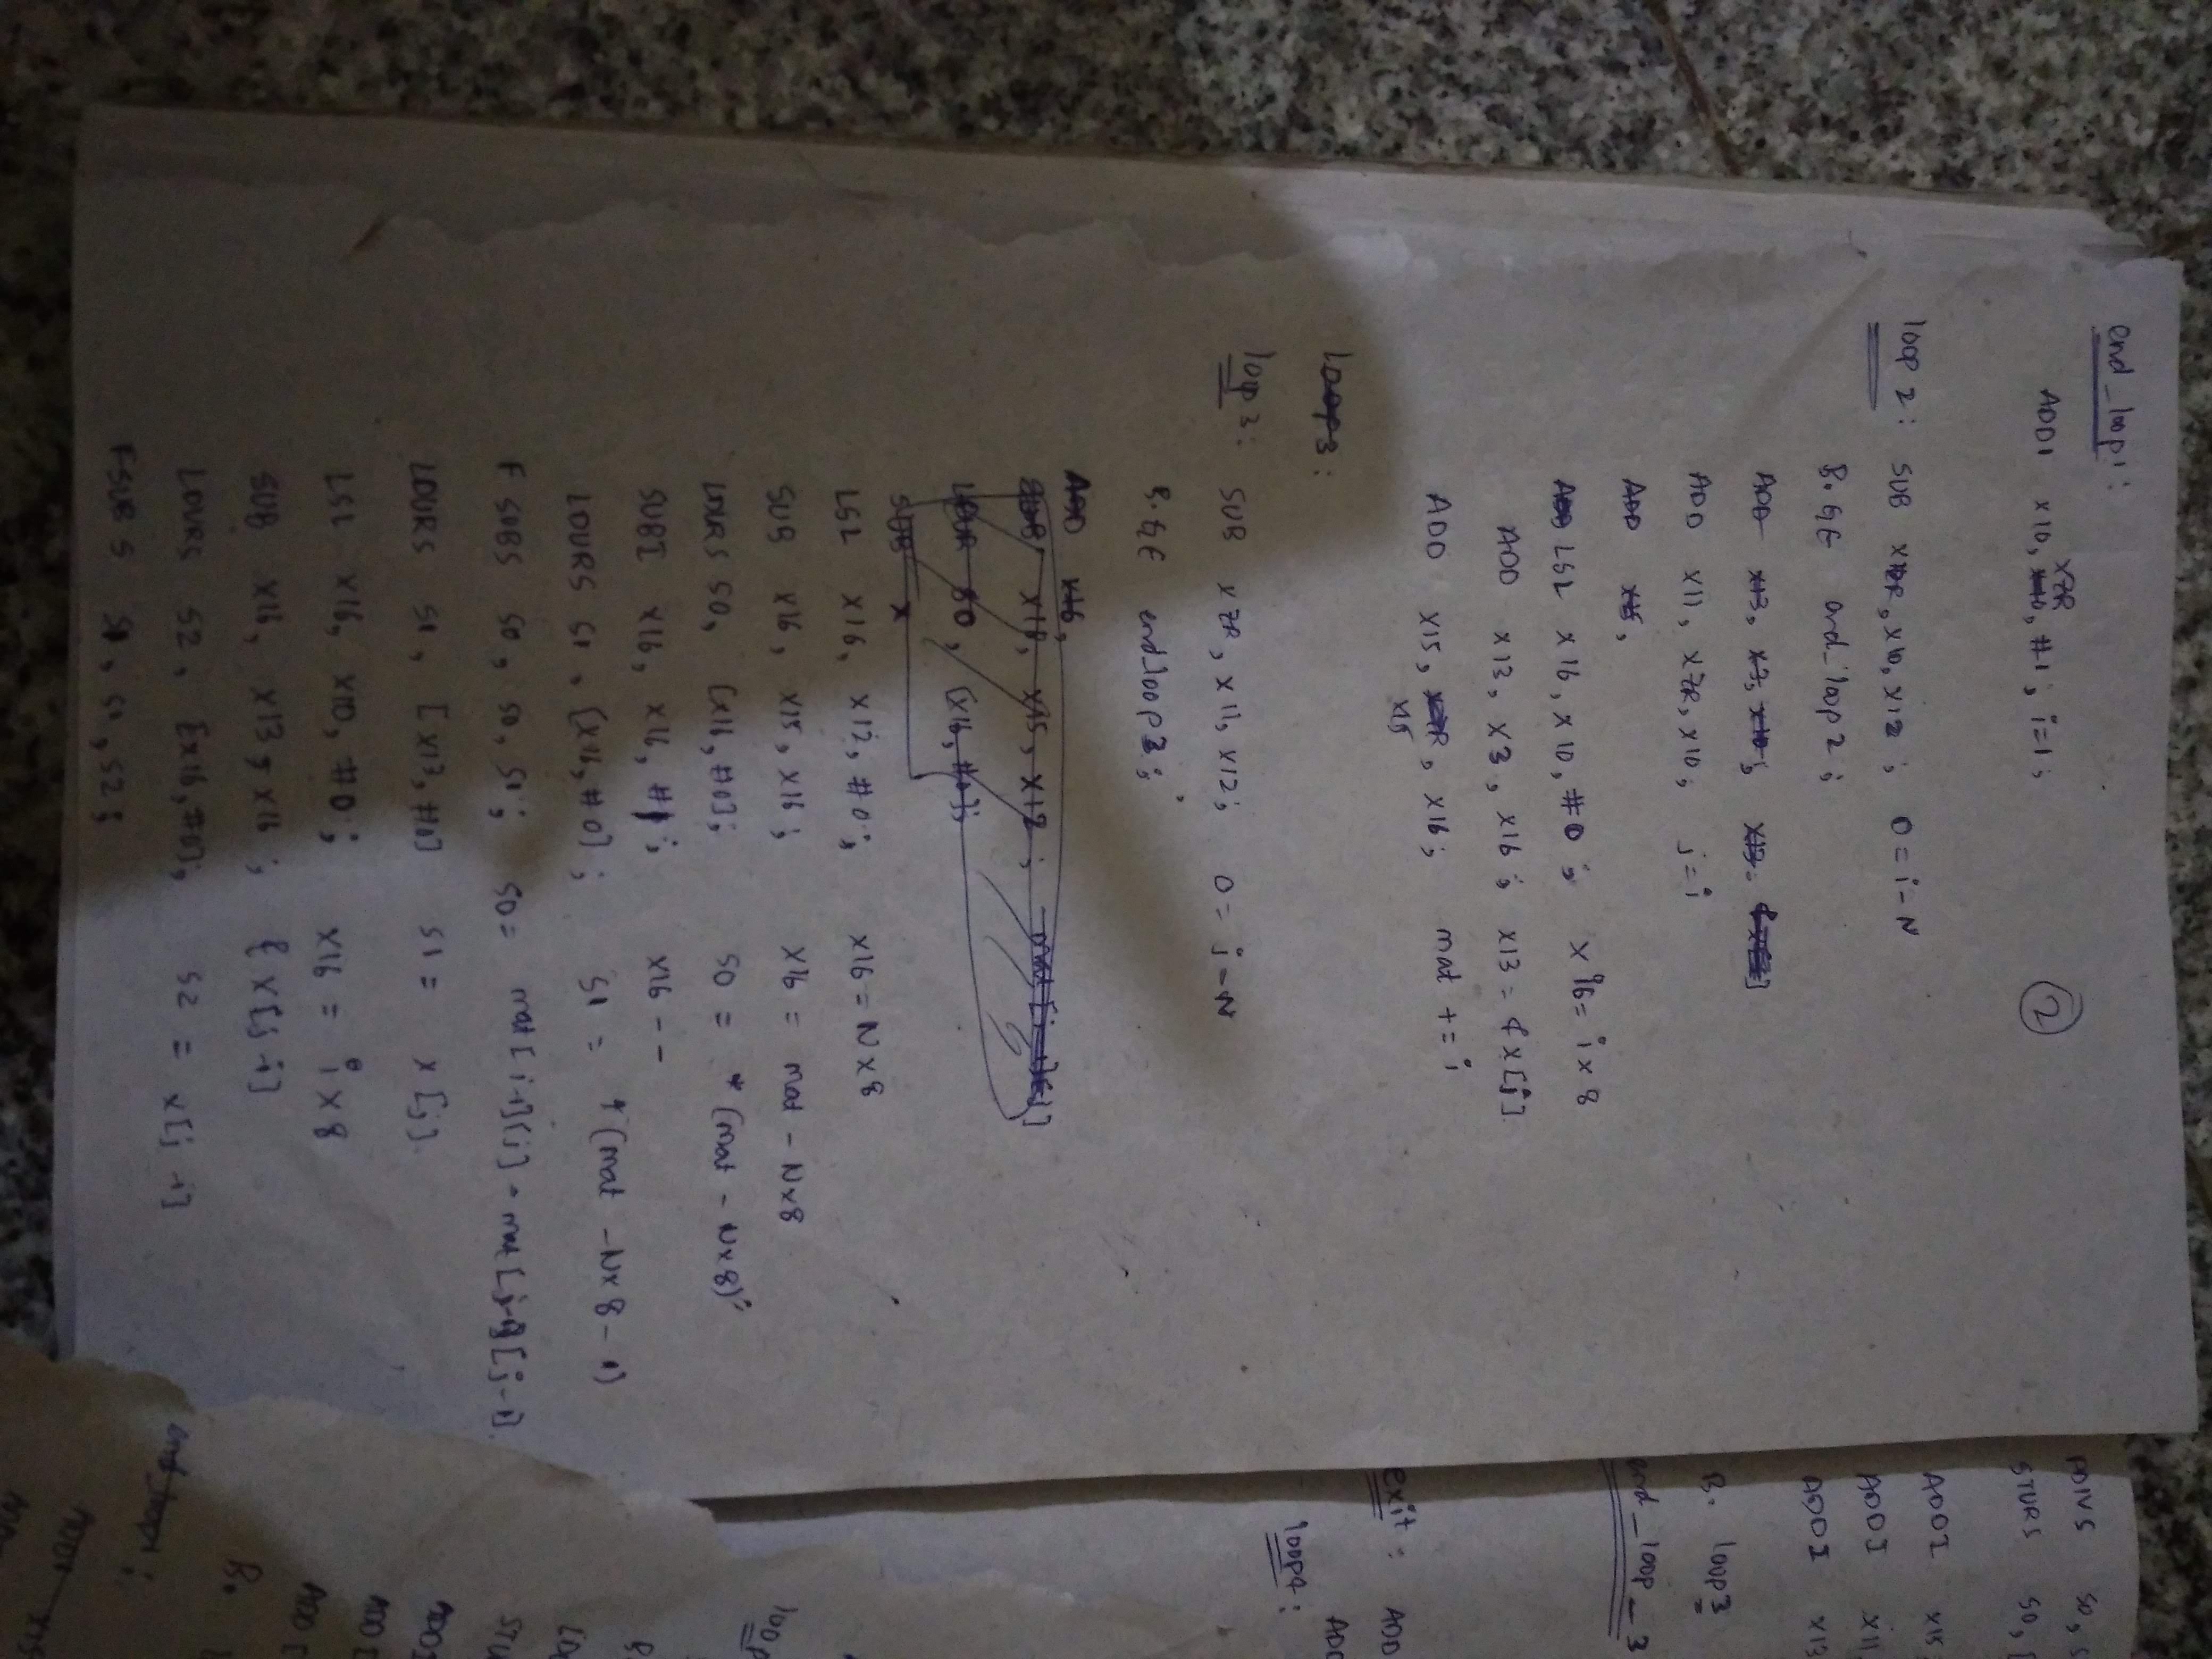 end_loop1:
ADDI X10, XZR, #1; i=1;
②
loop 2: SUB XZR, X10, X12; 0 = i-N
B.gE end_loop2;
ADD X13, X3, X10; X13
ADD X11, XZR, X10; j=i
ADD X15,
ADD LSL X16, X10, #0; X16 = i x 8
ADD X13, X3, X16; X13 = &x[i]
ADD X15, X15, X16; mat += i
loop3:
loop3: SUB XZR, X11, X12; 0 = j-N
B.gE end_loop3;
ADD X16,
SUB X16, X15, X12;
LDUR S0, [X16, #0];
SUB X
LSL X16, X12, #0; X16 = Nx8
SUB X16, X15, X16; X16 = mat - Nx8
LDURS S0, [X16, #0]; S0 = *(mat - Nx8);
SUBI X16, X16, #1; X16 --
LDURS S1, [X16, #0]; S1 = *(mat - Nx8 - 1)
FSUBS S0, S0, S1; S0 = mat[i-1][j] - mat[i-1][j-1]
LDURS S1, [X13, #0] S1 = x[j]
LSL X16, X10, #0; X16 = i x 8
SUB X16, X13, X16; &x[j-i]
LDURS S2, [X16, #0]; S2 = x[j-i]
FSUBS S1, S1, S2;
FDIVS S0, S
STURS S0,
ADDI X15
ADDI X11
ADDI X13
B. loop3
end_loop_3
exit: ADD
loop4:
ADD
loop
B.
ADD
ADD
ADDI
B.
end_loop1:
ADDI